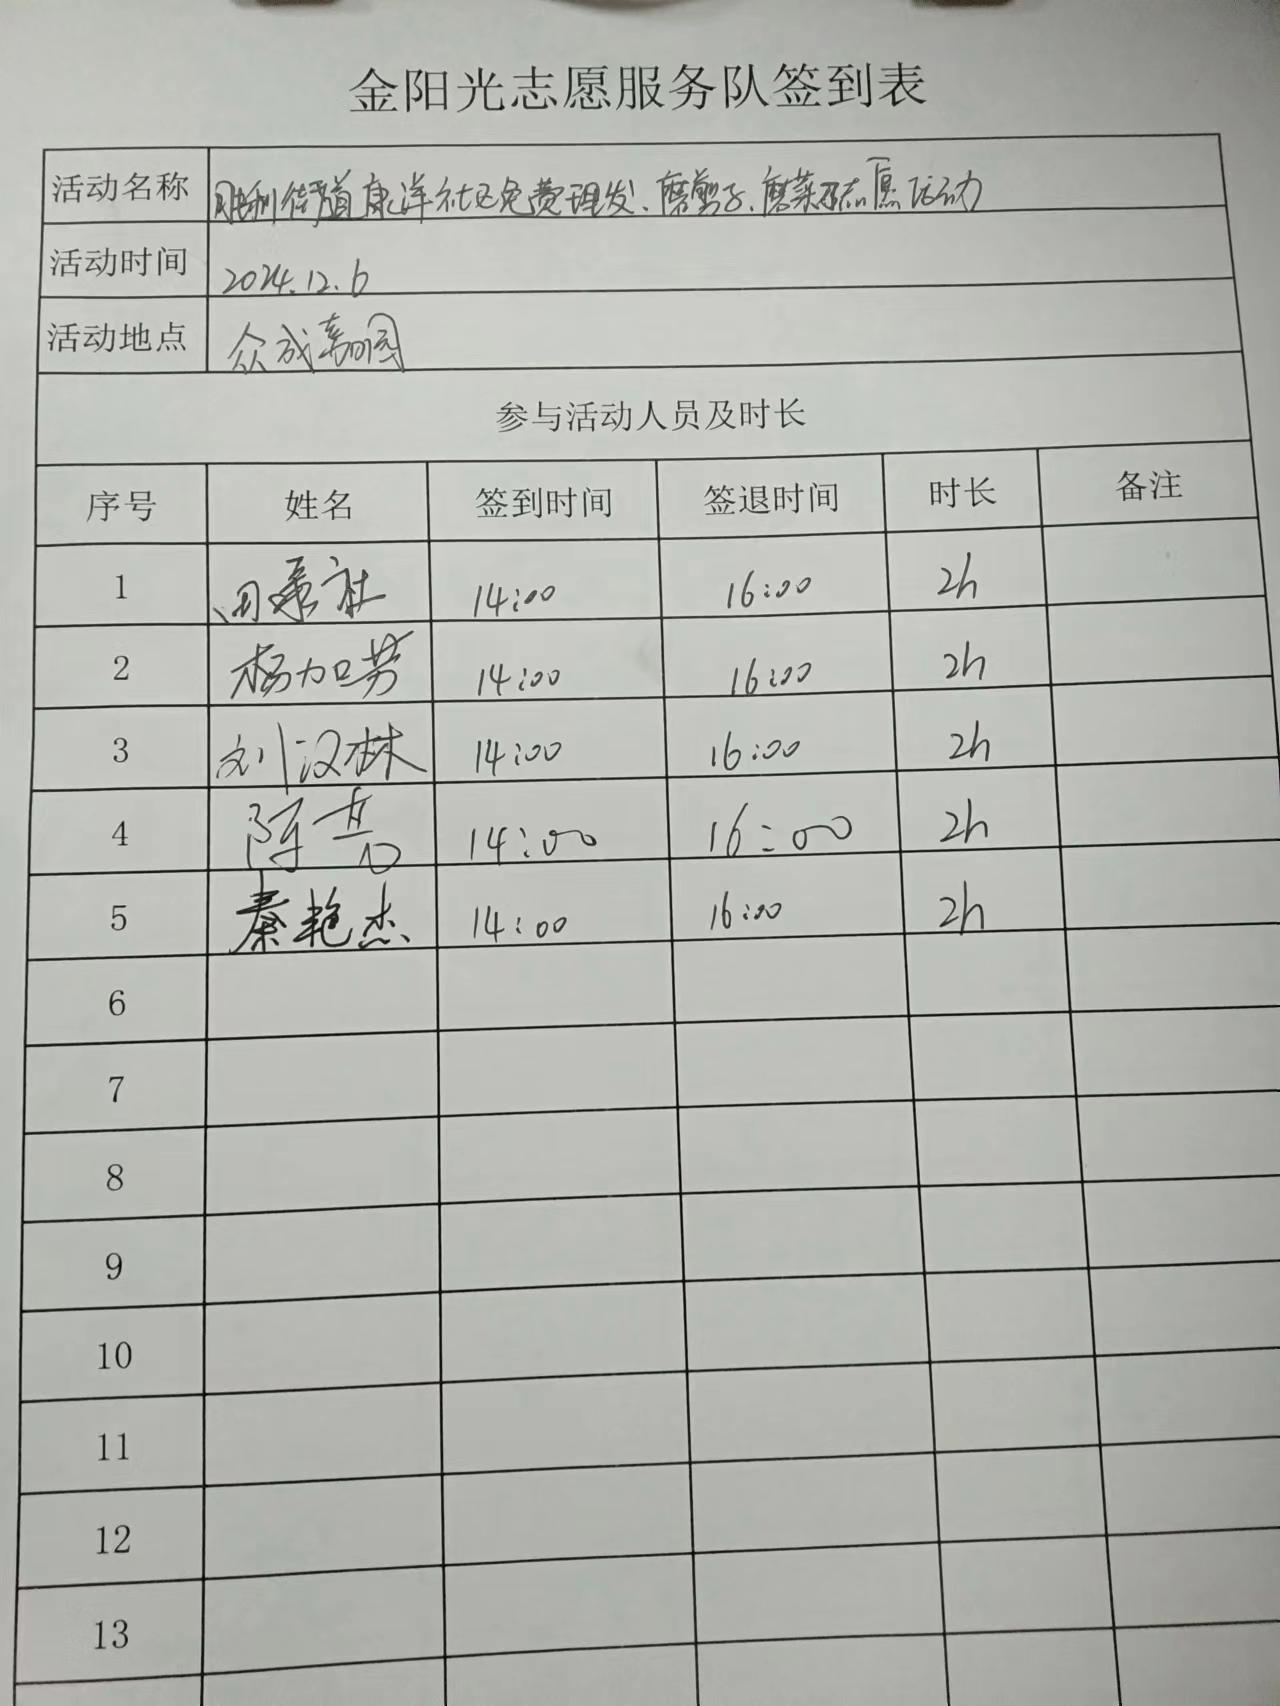 金阳光志愿服务队签到表
活动名称 胜利街道康洋社区免费理发、磨剪子、磨菜刀志愿活动
活动时间 2024.12.6
活动地点 众成嘉园
参与活动人员及时长
序号 姓名 签到时间 签退时间 时长 备注
1 14:00 16:00 2h
2 杨加芳 14:00 16:00 2h
3 刘汉林 14:00 16:00 2h
4 陈 14:00 16:00 2h
5 秦艳杰 14:00 16:00 2h
6
7
8
9
10
11
12
13